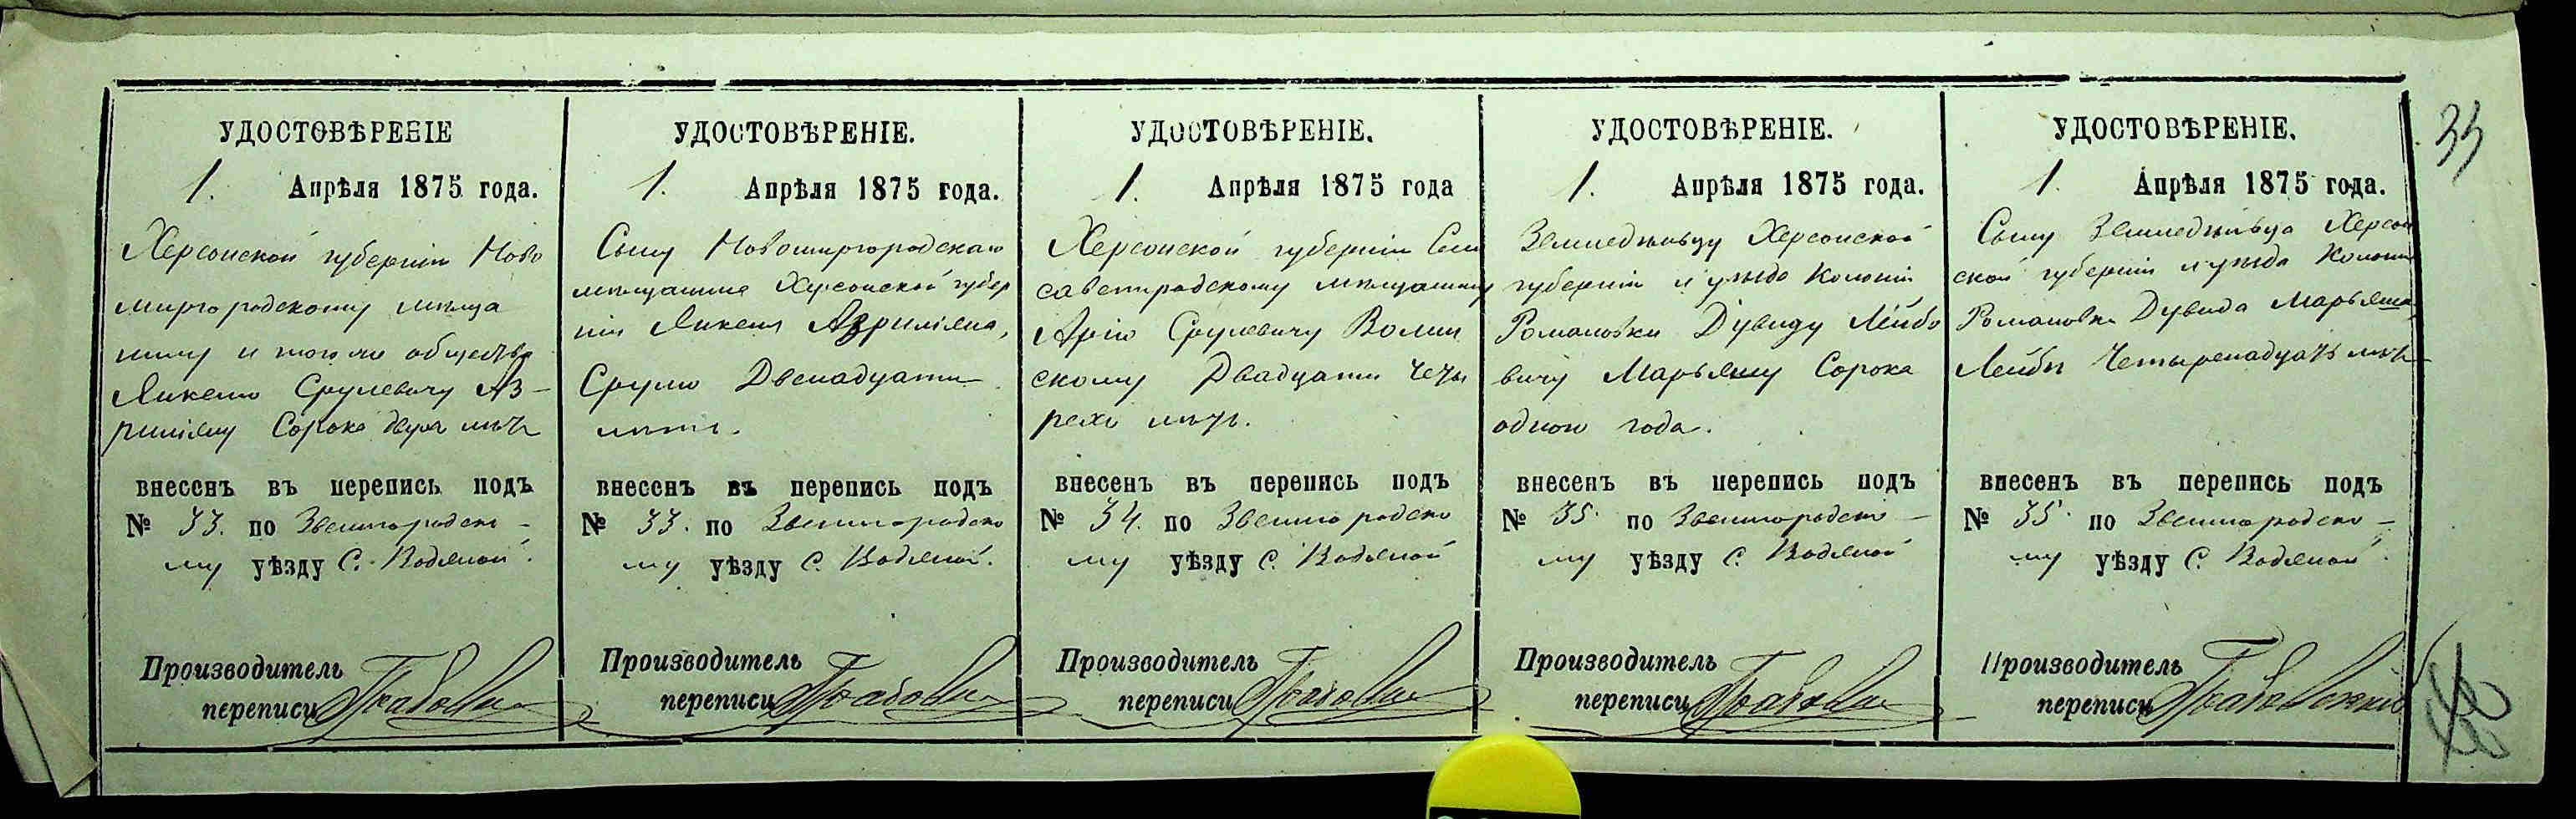 УДОСТОВѢРЕНІЕ
1. Апрѣля 1875 года.
Херсонской губерніи Ново
миргородскому мѣща
нину и того же общества
Янкелю Срулевичу Аз-
риліяну Сорока двухъ лѣтъ
внесенъ въ перепись подъ
№ 33. по Звенигородско-
му уѣзду С. Водяной.
Производитель
переписи
УДОСТОВѢРЕНІЕ.
1. Апрѣля 1875 года.
Сыну Новомиргородскаго
мѣщанина Херсонской губер
ніи Янкеля Азриліяна,
Срулю Двенадцати
лѣтъ.
внесенъ въ перепись подъ
№ 33. по Звенигородско
му уѣзду С. Водяной.
Производитель
переписи
УДОСТОВѢРЕНІЕ.
1. Апрѣля 1875 года
Херсонской губерніи Ели
саветградскому мѣщанину
Арію Срулевичу Волин
скому Двадцати четы
рехъ лѣтъ.
внесенъ въ перепись подъ
№ 34. по Звенигородско
му уѣзду С. Водяной
Производитель
переписи
УДОСТОВѢРЕНІЕ.
1. Апрѣля 1875 года.
Земледѣльцу Херсонской
губерніи и уѣзда Колоніи
Романовки Дувиду Лейбо
вичу Марьяшу Сорока
одного года.
внесенъ въ перепись подъ
№ 35. по Звенигородско-
му уѣзду С. Водяной
Производитель
переписи
УДОСТОВѢРЕНІЕ.
1. Апрѣля 1875 года.
Сыну Земледѣльца Херсон
ской губерніи и уѣзда Колоніи
Романовки Дувида Марьяша
Лейбѣ Четыренадцать лѣтъ
внесенъ въ перепись подъ
№ 35. по Звенигородско-
му уѣзду С. Водяной.
Производитель
переписи